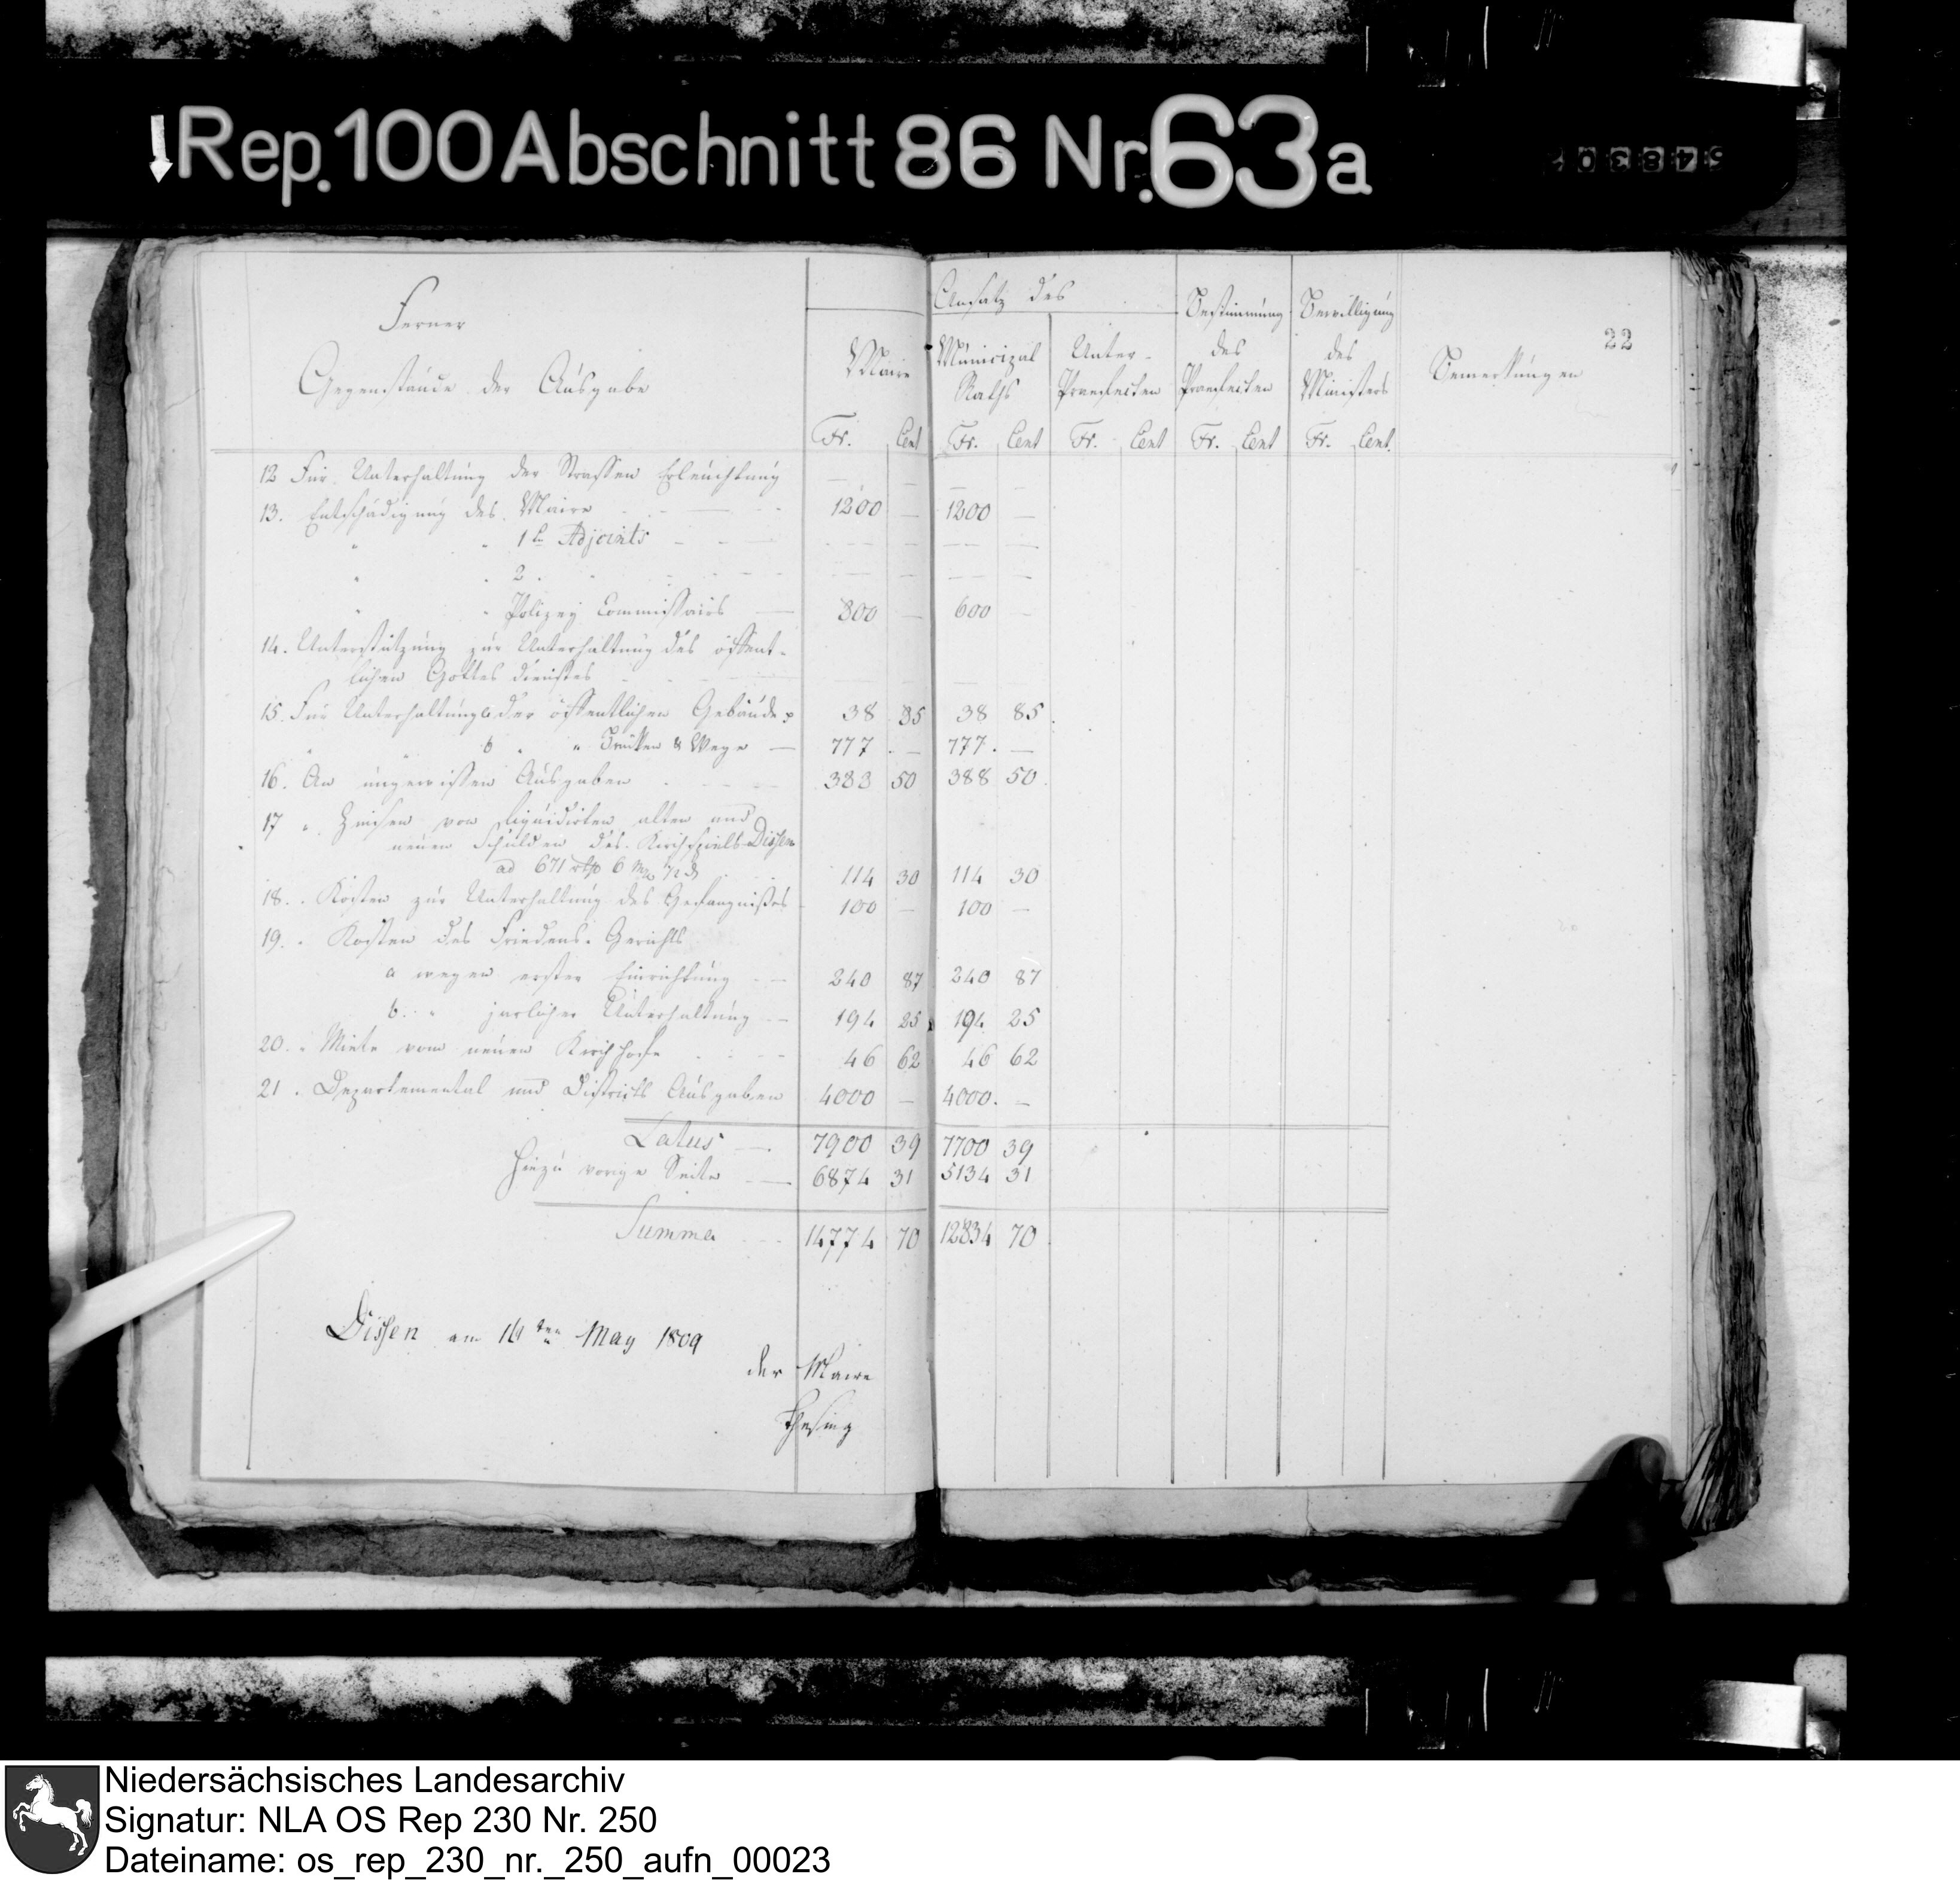 Rep. 100 Abschnitt 86 Nr. 63a
54830
22
Ferner
Gegenstände der Ausgabe
Ansatz des
Maire
Municipal Raths
Unter-Praefecten
Bestimmung des Praefecten
Bewilligung des Ministers
Bemerkungen
Fr. Cent Fr. Cent Fr. Cent Fr. Cent Fr. Cent.
12 Für Unterhaltung der Strassen Erleuchtung — — — —
13. Entschädigung des Maire 1200 — 1200 —
" " 1ten Adjoints — — — —
" " 2 " — — — —
" " Polizey Commissairs 800 — 600 —
14. Unterstützung zur Unterhaltung des öffent-
lichen Gottes dienstes
15. Für Unterhaltung a der öffentlichen Gebäude 38 85 38 85
" " b " " Brücken & Wege — 777 . — 777. —
16. An ungewissen Ausgaben 388 50 388 50
17 " Zinsen von liquidirten alten und
neuen Schulden des Kirchspiels Dissen
ad 671 rthr 6 mgr ½ d 114 30 114 30
18. " Kosten zur Unterhaltung des Gefängnißes 100 — 100 —
19. " Kosten des Friedens-Gerichts
a wegen erster Einrichtung 240 87 240 87
b. " jarlicher Unterhaltung 194 25 194 25
20. " Miete vom neuen Kirchhofe 46 62 46 62
21 " Departemental und Districts Ausgaben 4000 — 4000. —
Latus — 7900 39 7700 39
Hiezu vorige Seite — 6874 31 5134 31
Summa 14774 70 12834 70
Dissen am 16ten May 1809
der Maire
Thesing
Niedersächsisches Landesarchiv
Signatur: NLA OS Rep 230 Nr. 250
Dateiname: os_rep_230_nr._250_aufn_00023